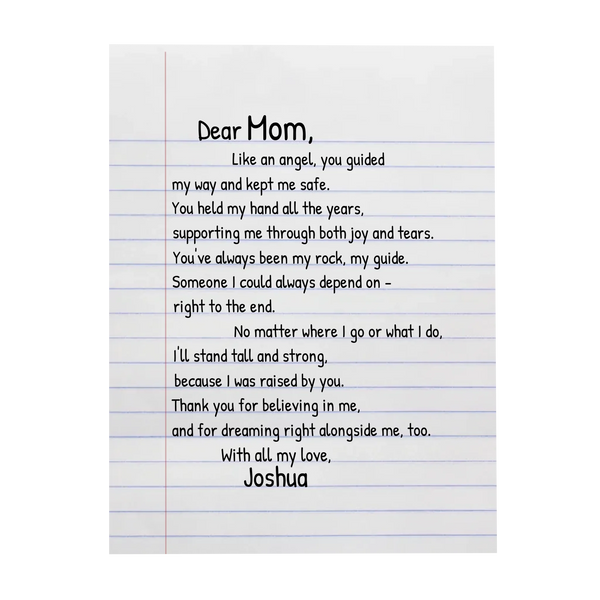 Dear Mom,
Like an angel, you guided
my way and kept me safe.
You held my hand all the years,
supporting me through both joy and tears.
You've always been my rock, my guide.
Someone I could always depend on -
right to the end.
No matter where I go or what I do,
I'll stand tall and strong,
because I was raised by you.
Thank you for believing in me,
and for dreaming right alongside me, too.
With all my love,
Joshua